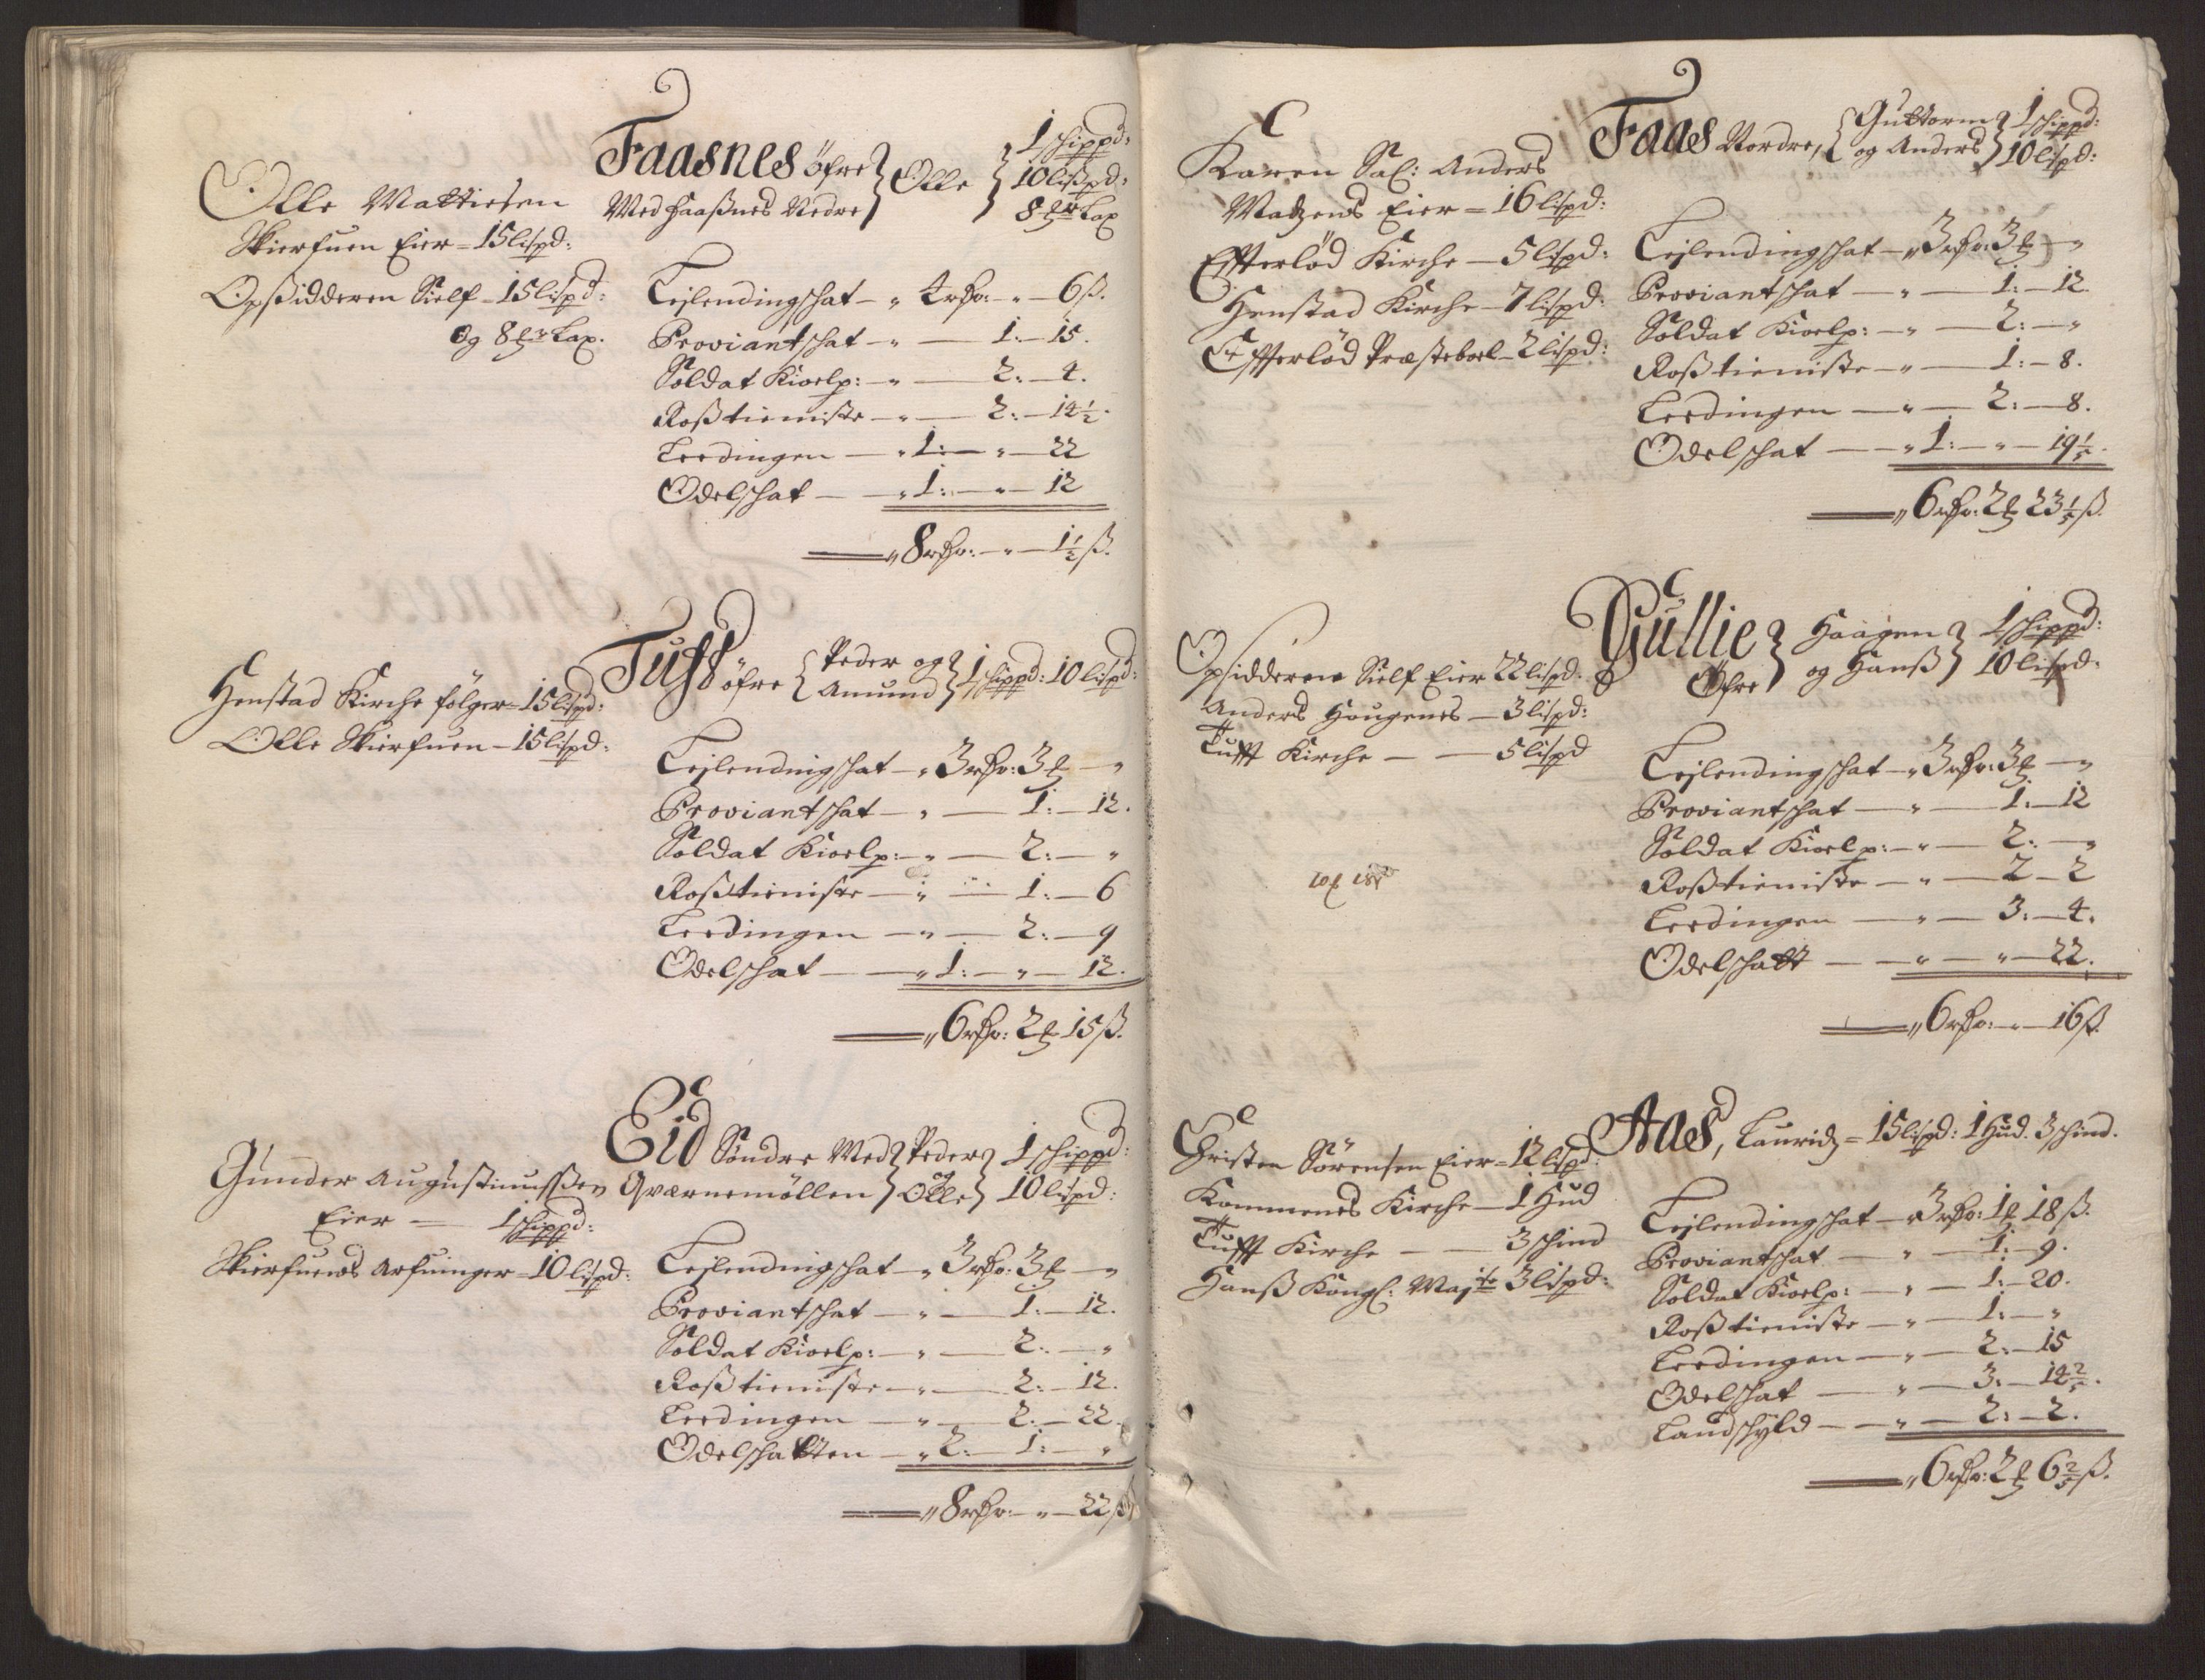 Faasnes öfre } Olle } 1 schippd:
Med Haaßnes Nedre } 10 lispd:
8 mk Lax
Olle Mattiesen
Skierfuen Eier = 15 lispd:
Opsidderen Sielf = 15 lispd:
og 8 Lax.
Lejlendingschat — „ 4 rdr: „ — 6 ß.
Proviantschat — „ — 1: — 15.
Soldat Kioelp: — „ — 2: — 4.
Roßtieniste — „ — 2: — 14½.
Leedingen — „ 1: — „ — 22
Odelschat — „ 1: — „ — 12
„ 8 rdr: — „ — 1½ ß.
Tufft öfre { Peder og Amund } 1 schippd: 10 lispd:
Henstad Kirche fölger = 15 lispd:
Olle Skierfuen — 15 lispd:
Lejlendingschat — „ 3 rdr: 3 — „
Proviantschat — „ — 1: — 12.
Soldat Kioelp: — „ — 2: — „
Roßtieniste — „ — 1: — 6
Leedingen — „ — 2: — 9
Odelschat — „ 1: — „ — 12.
„ 6 rdr: 2 15 ß.
Eid Söndre Med } Peder } 1 schippd:
Qværnemöllen } og Olle } 10 lispd:
Gunder Augustinußen
Eier = 1 schippd:
Skierfuens Arfuinger — 10 lispd:
Lejlendingschat — „ 3 rdr: 3 — „
Proviantschat — „ — 1: — 12.
Soldat Kioelp: — „ — 2: — „
Roßtieniste — „ — 2: — 12.
Leedingen — „ — 2: — 22.
Odelschatten — „ 2: — 1: — „
„ 8 rdr: — „ — 22 ß
Faas Nordre, { Guttorm og Anders } 1 schippd: 10 lispd:
Karen Sal: Anders
Madzens Eier = 16 lispd:
Efterlöd Kirche — 5 lispd:
Henstad Kirche — 7 lispd:
Efterlöd Præsteboel — 2 lispd:
Lejlendingschat — „ 3 rdr: 3 — „
Proviantschat — „ — 1: — 12.
Soldat Kioelp: — „ — 2: — „
Roßtieniste — „ — 1: — 8.
Leedingen — „ — 2: — 8.
Odelschat — „ 1: — „ — 19 1/5.
„ 6 rdr: 2 23 1/5 ß.
Gullie Öfre } Haagen og Hanß } 1 schippd: 10 lispd:
Opsidderne Sielf Eier 22 lispd:
Anders Haugenes — 3 lispd:
Tufft Kirche — — 5 lispd
Lejlendingschat — „ 3 rdr: 3 — „
Proviantschat — „ — 1: — 12
Soldat Kioelp: — „ — 2: — „
Roßtieniste — „ — 2 — 2
Leedingen — „ — 3: — 4.
Odelschatt — „ — „ — 22.
„ 6 rdr: — „ — 16 ß.
Aas, Lauridz = 15 lispd: 1 Hud. 3 schind.
Christen Sörensen Eier = 12 lispd:
Kommenes Kirche — 1 Hud
Tufft Kirche — — 3 schind
Hanß Kongl: Majte 3 lispd:
Lejlendingschat — „ 3 rdr: 1 18 ß.
Proviantschat — „ — 1: — 9.
Soldat Kioelp: — „ — 1: — 20.
Roßtieniste — „ — 1: — „
Leedingen — „ — 2: — 15
Odelschat — „ — 3: — 14 2/5.
Landschyld — „ — 2: — 2.
„ 6 rdr: 2 6 2/5 ß.